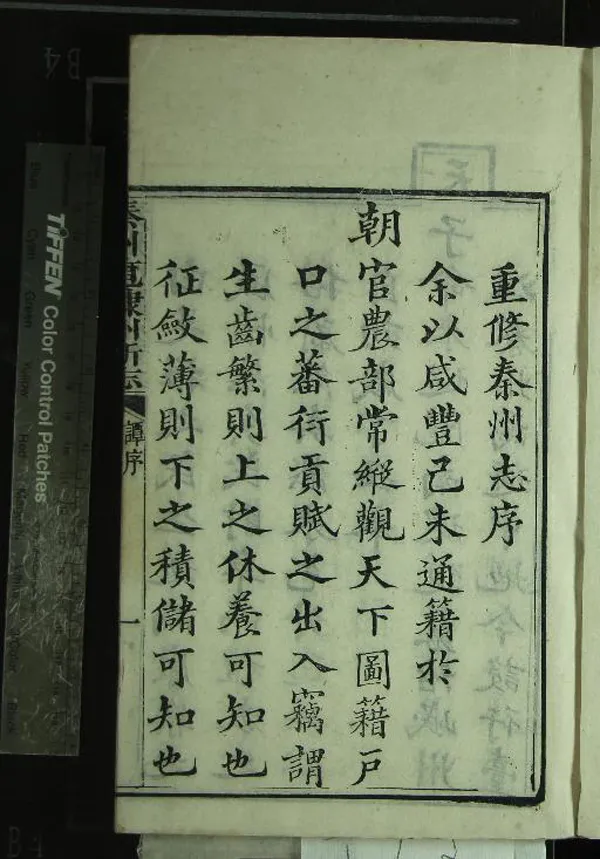 重修秦州志序
余以咸豐己未通籍於
朝官農部常縱觀天下圖籍戶
口之蕃衍貢賦之出入竊謂
生齒繁則上之休養可知也
征斂薄則下之積儲可知也
秦州直隸州新志
譚序
一
TIFFEN Color Control Patches
Blue
Cyan
Green
Yellow
Red
Black
B4